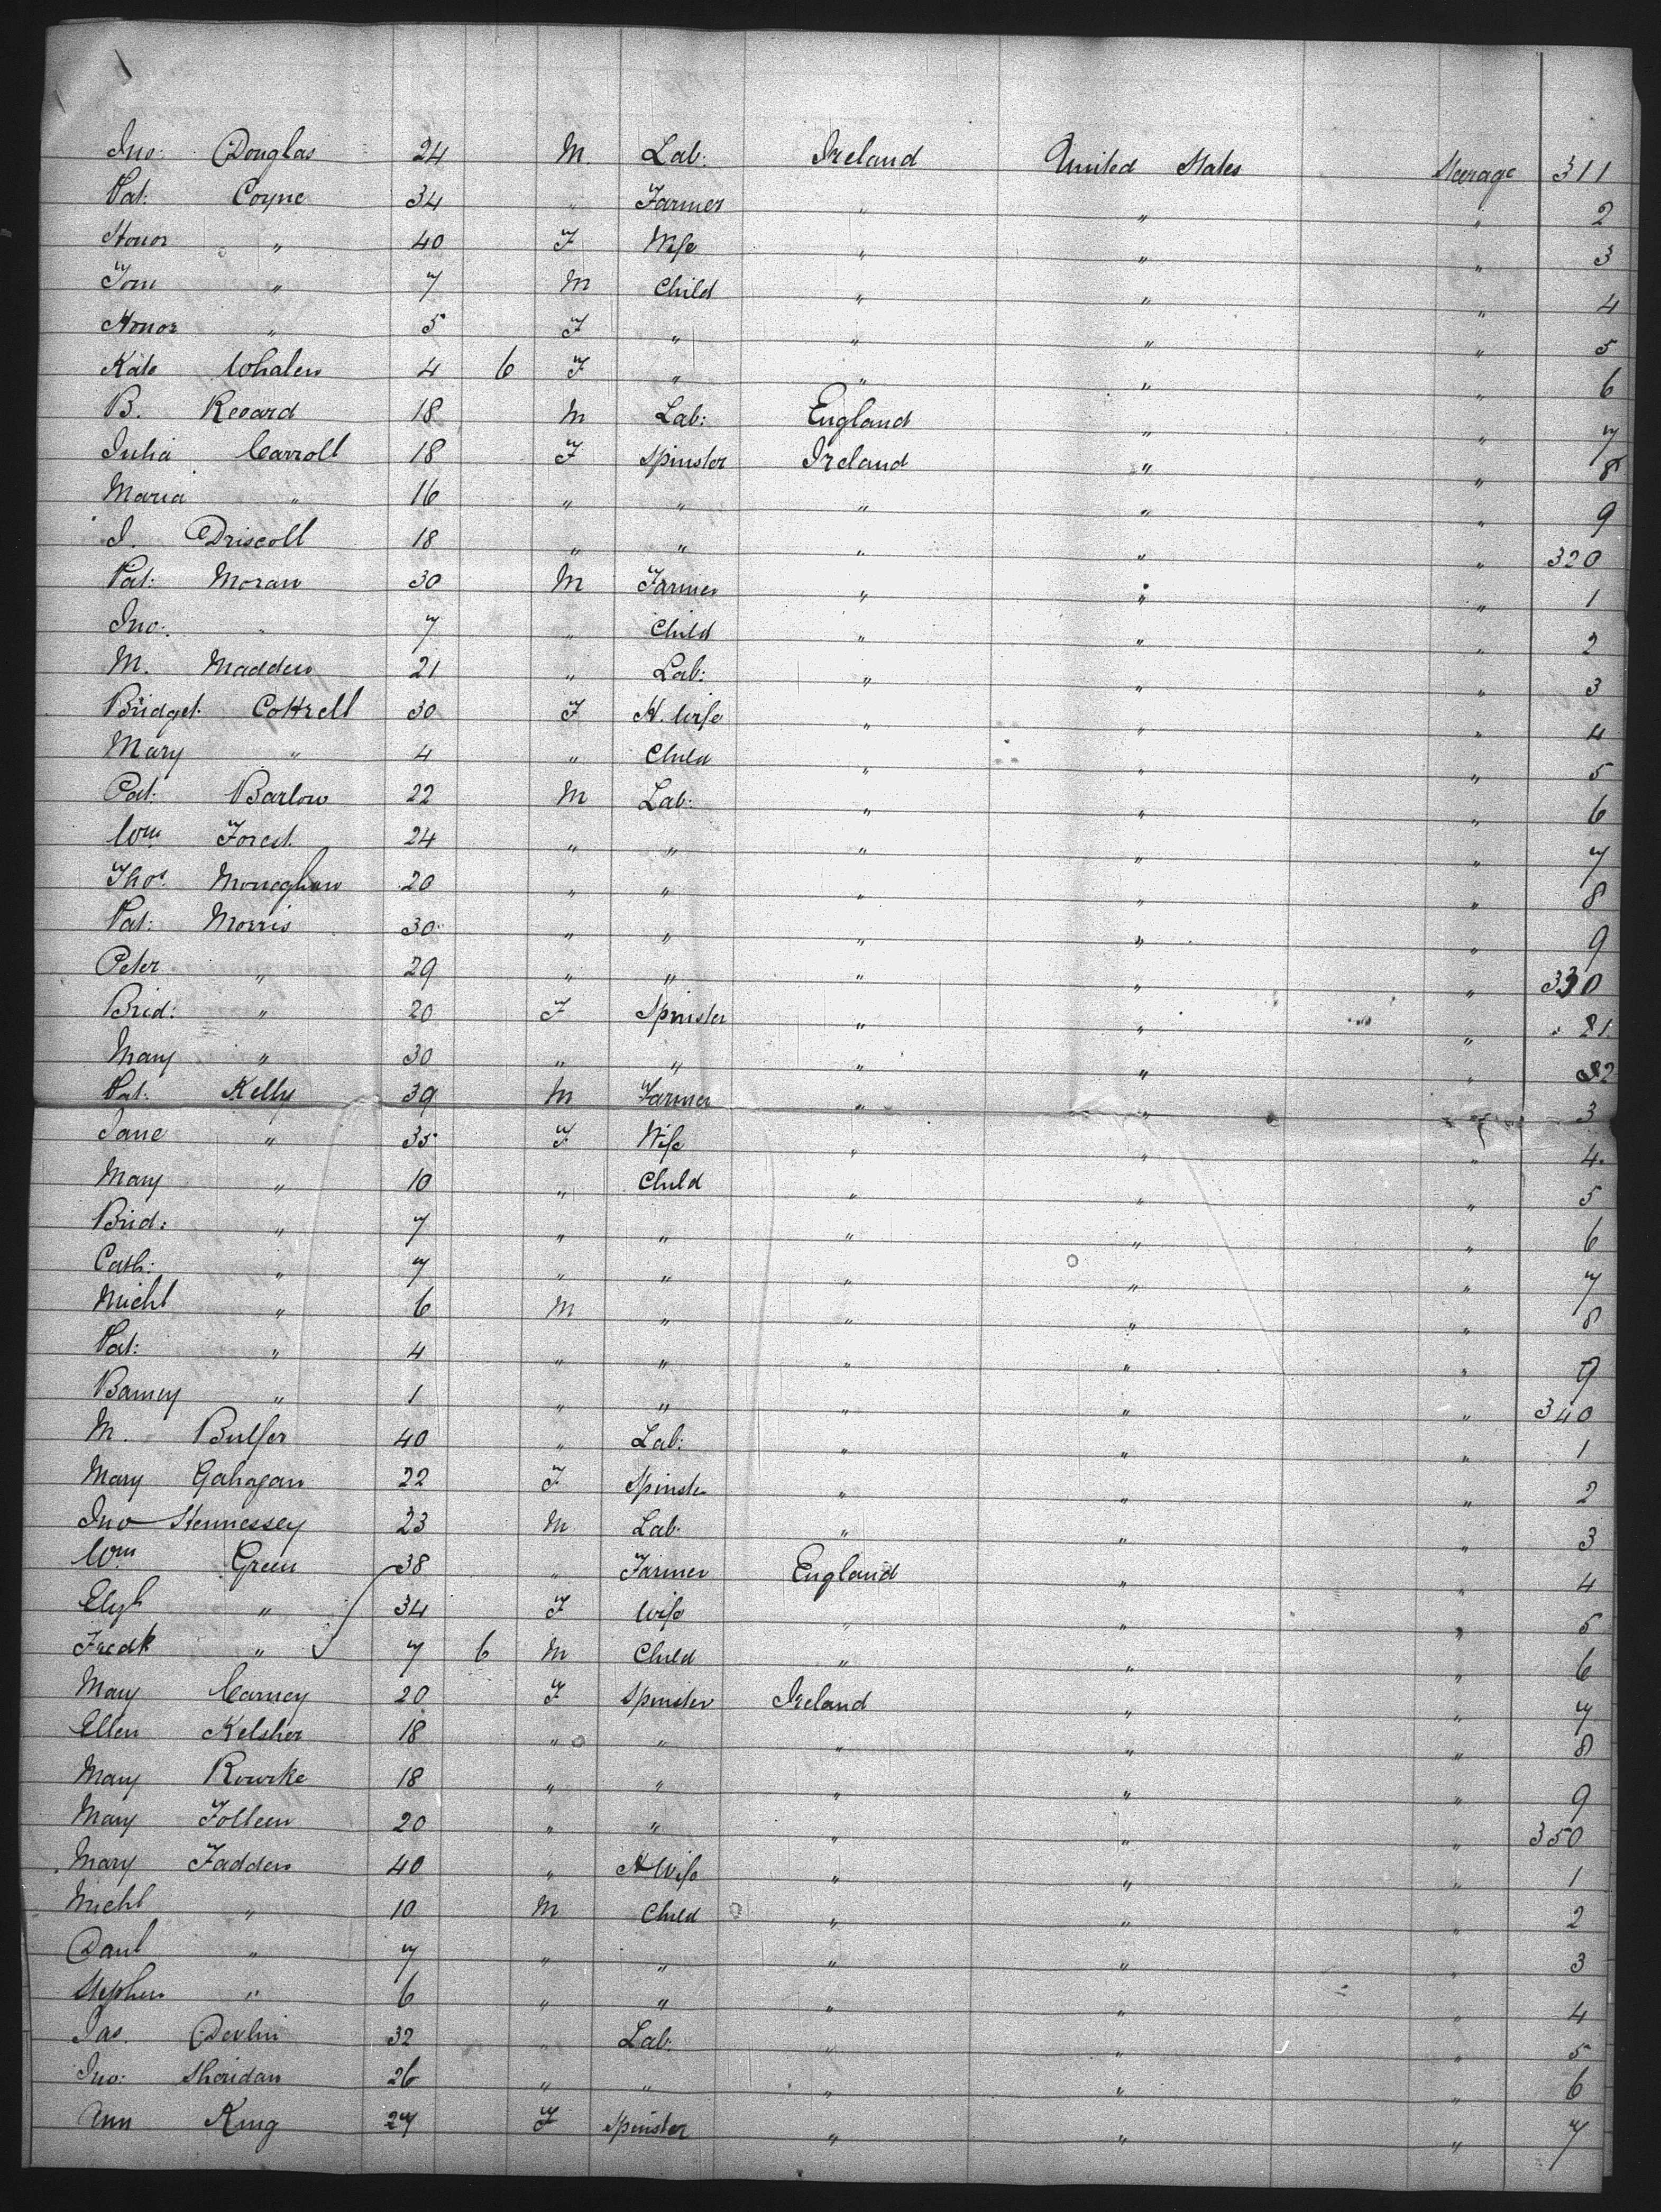 Jno: Douglas 24 M. Lab: Ireland United States Steerage 311
Pat: Coyne 34 " Farmer " " " 2
Honor " 40 F Wife " " " 3
Tom " 7 M Child " " " 4
Honor " 5 F " " " " 5
Kate Whalen 4 6 F " " " " 6
B. Revard 18 M Lab: England " " 7
Julia Carroll 18 F Spinster Ireland " " 8
Maria " 16 " " " " " 9
J. Driscoll 18 " " " " " 320
Pat: Moran 30 M Farmer " " " 1
Jno: " 7 " Child " " " 2
M. Madden 21 " Lab: " " " 3
Bridget Cottrell 30 F H. Wife " " " 4
Mary " 4 " Child " " " 5
Pat: Barlow 22 M Lab: " " " 6
Wm Forest 24 " " " " " 7
Thos. Moneghan 20 " " " " " 8
Pat: Morris 30 " " " " " 9
Peter " 29 " " " " " 330
Brid: " 20 F Spinster " " " 31
Mary " 30 " " " " " 32
Pat: Kelly 39 M Farmer " " " 3
Jane " 35 F Wife " " " 4
Mary " 10 " Child " " " 5
Brid: " 7 " " " " " 6
Cath: " 7 " " " " " 7
Michl " 6 M " " " " 8
Pat: " 4 " " " " " 9
Barney " 1 " " " " " 340
M. Bulfer 40 " Lab: " " " 1
Mary Gahagan 22 F Spinster " " " 2
Jno Hennessey 23 M Lab. " " " 3
Wm Green 38 " Farmer England " " 4
Elizh " 34 F Wife " " " 5
Fredk " 7 6 M Child " " " 6
Mary Carney 20 F Spinster Ireland " " 7
Ellen Kelsher 18 " " " " " 8
Mary Rourke 18 " " " " " 9
Mary Folleen 20 " " " " " 350
Mary Fadden 40 " H Wife " " " 1
Michl " 10 M Child " " " 2
Danl " 7 " " " " " 3
Stephen " 6 " " " " " 4
Jas. Devlin 32 " Lab: " " " 5
Jno: Sheridan 26 " " " " " 6
Ann King 27 F Spinster " " " 7